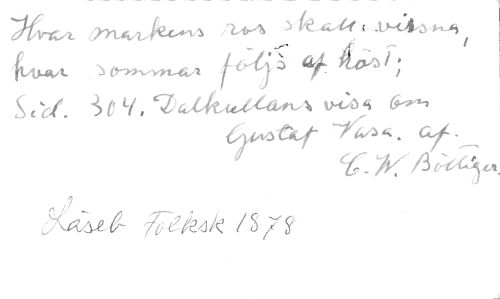 Hvar markens ros skall vissna,
hvar sommar följs af höst;
Sid. 304. Dalkullans visa om
Gustaf Vasa. af.
C. W. Böttiger.
Läseb Folksk 1878